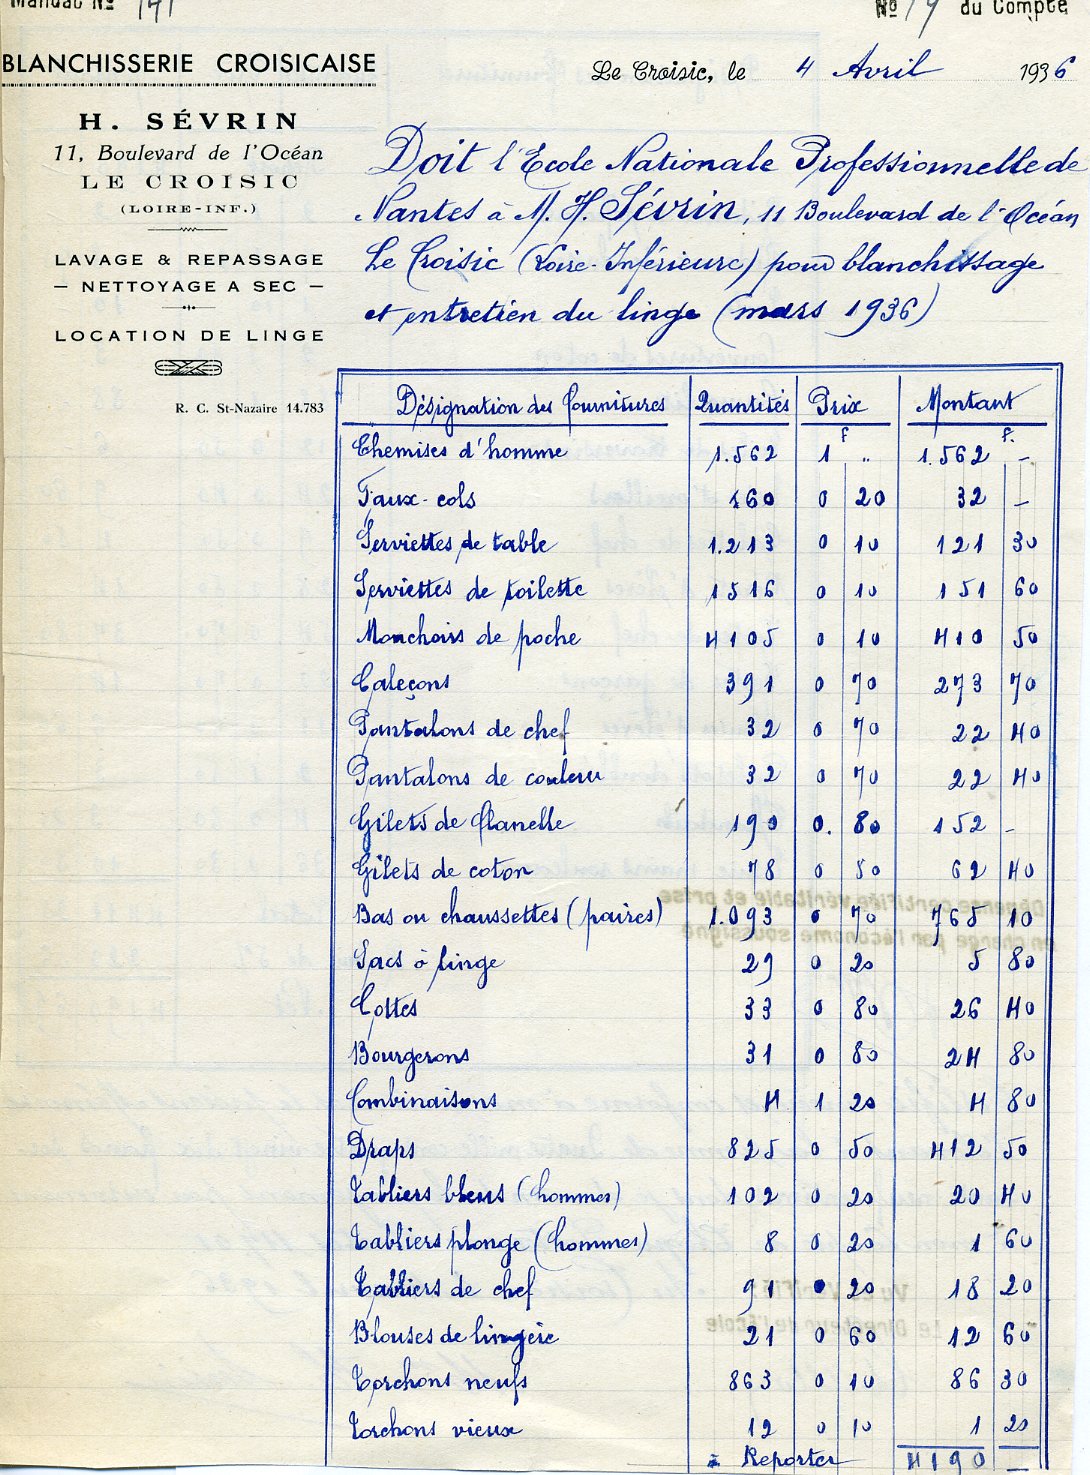 Mandat Nº 141
Nº 14 du Compte
BLANCHISSERIE CROISICAISE
Le Croisic, le 4 Avril 1936
H. SÉVRIN
11, Boulevard de l'Océan
LE CROISIC
(LOIRE-INF.)
LAVAGE & REPASSAGE
— NETTOYAGE A SEC —
LOCATION DE LINGE
R. C. St-Nazaire 14.783
Doit l'Ecole Nationale Professionnelle de
Nantes à M. H. Sévrin, 11 Boulevard de l'Océan
Le Croisic (Loire-Inférieure) pour blanchissage
et entretien du linge (mars 1936)
Désignation des fournitures Quantités Prix Montant
f f.
Chemises d'homme 1.562 1 " 1.562 —
Faux-cols 160 0 20 32 —
Serviettes de table 1.213 0 10 121 30
Serviettes de toilette 1516 0 10 151 60
Mouchoirs de poche 4105 0 10 410 50
Caleçons 391 0 70 273 70
Pantalons de chef 32 0 70 22 40
Pantalons de couleur 32 0 70 22 40
Gilets de flanelle 190 0. 80 152 —
Gilets de coton 78 0 80 62 40
Bas ou chaussettes (paires) 1.093 0 70 765 10
Sacs à linge 29 0 20 5 80
Cottes 33 0 80 26 40
Bourgerons 31 0 80 24 80
Combinaisons 4 1 20 4 80
Draps 825 0 50 412 50
Tabliers bleus (hommes) 102 0 20 20 40
Tabliers plonge (hommes) 8 0 20 1 60
Tabliers de chef 91 0 20 18 20
Blouses de lingerie 21 0 60 12 60
Torchons neufs 863 0 10 86 30
Torchons vieux 12 0 10 1 20
à Reporter 4190 —